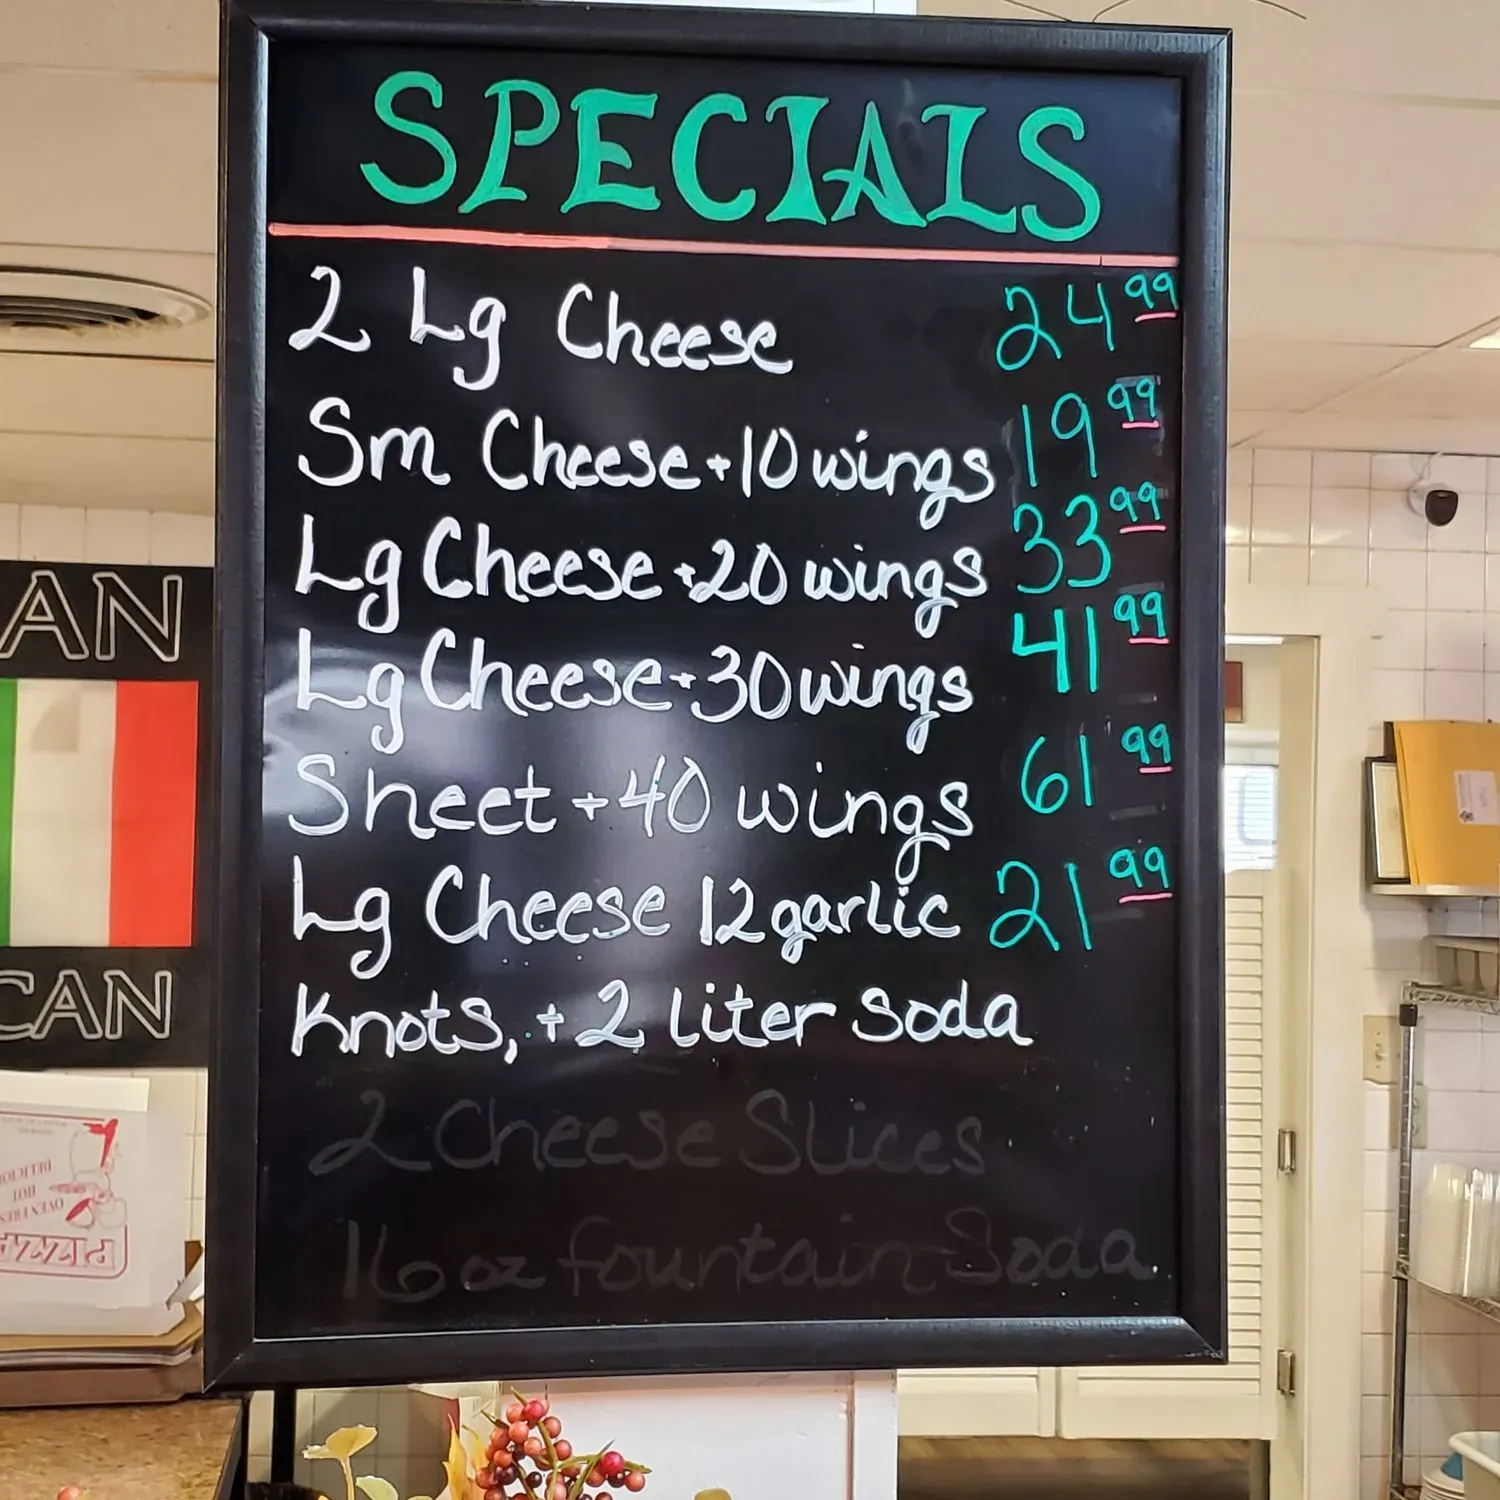 SPECIALS
2 Lg Cheese 24.99
Sm Cheese + 10 wings 19.99
Lg Cheese + 20 wings 33.99
Lg Cheese + 30 wings 41.99
Sheet + 40 wings 61.99
Lg Cheese 12 garlic 21.99
Knots, + 2 liter soda
2 Cheese Slices
16 oz fountain Soda
AN
CAN
DELICIOUS
HOT
OVEN FRESH
PIZZA